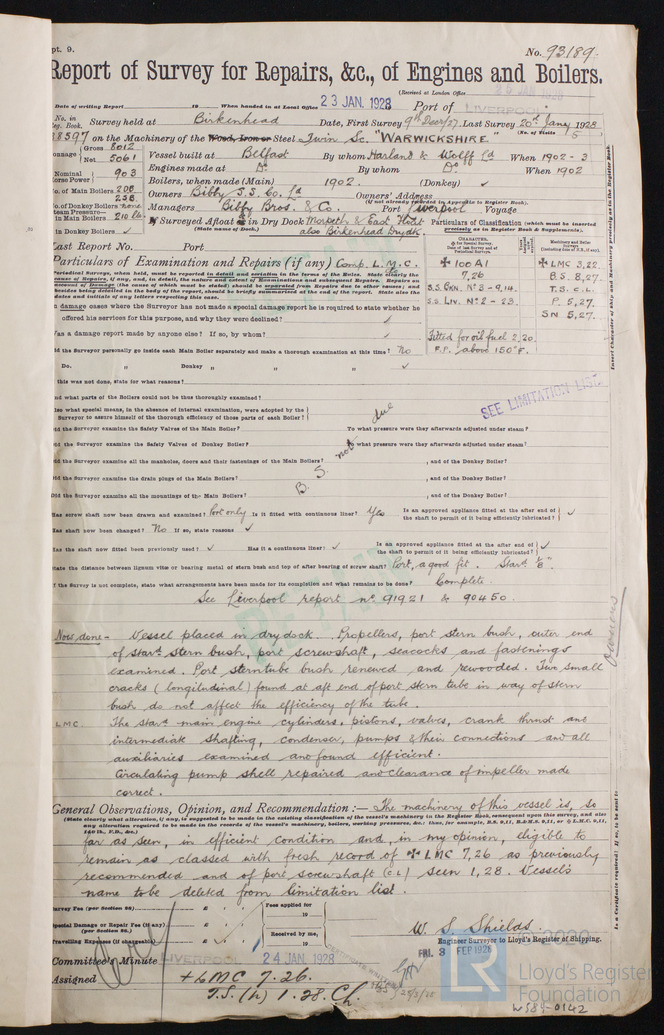 pt. 9.
No. 93189.
Report of Survey for Repairs, &c., of Engines and Boilers.
(Received at London Office
Date of writing Report 19 When handed in at Local Office 23 JAN. 1928 Port of LIVERPOOL
No. in Reg. Book. Survey held at Birkenhead Date, First Survey 9th Decr/27. Last Survey 20th Jany 1928
8597 on the Machinery of the Wood, Iron or Steel Twin Sc. "WARWICKSHIRE" (No. of Visits 5)
Tonnage Gross 8012
Net 5061
Vessel built at Belfast By whom Harland & Wolff Ld When 1902-3
Engines made at Do By whom Do When 1902
Nominal Horse Power 903
Boilers, when made (Main) 1902. (Donkey) ✓
No. of Main Boilers 2DB 2SB
Owners Bibby S.S. Co. Ld Owners' Address
(if not already recorded in Appendix to Register Book.)
No. of Donkey Boilers none
Managers Bibby Bros. & Co. Port Liverpool Voyage
Steam Pressure in Main Boilers 210 lbs
If Surveyed Afloat or in Dry Dock Morpeth & East Float
(State name of Dock.) also Birkenhead Drydk.
in Donkey Boilers ✓
Particulars of Classification (which must be inserted precisely as in Register Book & Supplements).
Last Report No. Port
Particulars of Examination and Repairs (if any) Comp. L.M.C.
✠ 100 A1
7,26
S.S. GRN. No 3-9.14.
S.S. Liv. No 2-23.
✠ LMC 3,22.
B.S. 8,27.
T.S. C.L.
P. 5,27.
SN 5,27.
Fitted for oil fuel 2,20.
F.P. above 150°F.
In damage cases where the Surveyor has not made a special damage report he is required to state whether he
offered his services for this purpose, and why they were declined? ✓
Was a damage report made by anyone else? If so, by whom? ✓
Did the Surveyor personally go inside each Main Boiler separately and make a thorough examination at this time? No
Do. " Donkey " " " ✓
If this was not done, state for what reasons?
And what parts of the Boilers could not be thus thoroughly examined?
Also what special means, in the absence of internal examination, were adopted by the
Surveyor to assure himself of the thorough efficiency of those parts of each Boiler?
SEE LIMITATION LIST
Did the Surveyor examine the Safety Valves of the Main Boiler? To what pressure were they afterwards adjusted under steam?
Did the Surveyor examine the Safety Valves of Donkey Boiler? To what pressure were they afterwards adjusted under steam?
Did the Surveyor examine all the manholes, doors and their fastenings of the Main Boilers? , and of the Donkey Boiler?
Did the Surveyor examine the drain plugs of the Main Boilers? , and of the Donkey Boiler?
Did the Surveyor examine all the mountings of the Main Boilers? , and of the Donkey Boiler?
B. S. not due
Has screw shaft now been drawn and examined? Port only Is it fitted with continuous liner? Yes Is an approved appliance fitted at the after end of the shaft to permit of it being efficiently lubricated? ✓
Has shaft now been changed? No If so, state reasons ✓
Has the shaft now fitted been previously used? ✓ Has it a continuous liner? ✓ Is an approved appliance fitted at the after end of the shaft to permit of it being efficiently lubricated? ✓
State the distance between lignum vitæ or bearing metal of stern bush and top of after bearing of screw shaft? Port, a good fit. Starbd
If the Survey is not complete, state what arrangements have been made for its completion and what remains to be done? Complete.
See Liverpool report no 91921 & 90450.
Now done - Vessel placed in dry dock. Propellers, port stern bush, outer end
of starbd stern bush, port screwshaft, seacocks and fastenings
examined. Port sterntube bush renewed and rewooded. Two small
cracks (longitudinal) found at aft end of port stern tube in way of stern
bush do not affect the efficiency of the tube.
LMC. The starbd main engine cylinders, pistons, valves, crank thrust and
intermediate shafting, condenser, pumps & their connections and all
auxiliaries examined and found efficient.
Circulating pump shell repaired and clearance of impeller made
correct.
General Observations, Opinion, and Recommendation:— The machinery of this vessel is, so
(State clearly what alteration, if any, is suggested to be made in the existing classification of the vessel's machinery in the Register Book, consequent upon this survey, and also
any alteration required to be made in the records of the vessel's machinery, boilers, working pressures, &c.
far as seen, in efficient condition and, in my opinion, eligible to
remain as classed with fresh record of ✠ LMC 7,26 as previously
recommended and of port screwshaft (CL) seen 1,28. Vessel's
name to be deleted from limitation list.
Survey Fee (per Section 28) £ Fees applied for 19
Special Damage or Repair Fee (if any) (per Section 28.) £
Travelling Expenses (if chargeable) £ Received by me, 19
W. S. Shields.
Engineer Surveyor to Lloyd's Register of Shipping.
Committee's Minute LIVERPOOL 24 JAN. 1928
FRI. 3 FEB 1928
Assigned + LMC 7.26.
T.S. (h) 1.28. CL.
LR
Lloyd's Register
Foundation
W584-0142